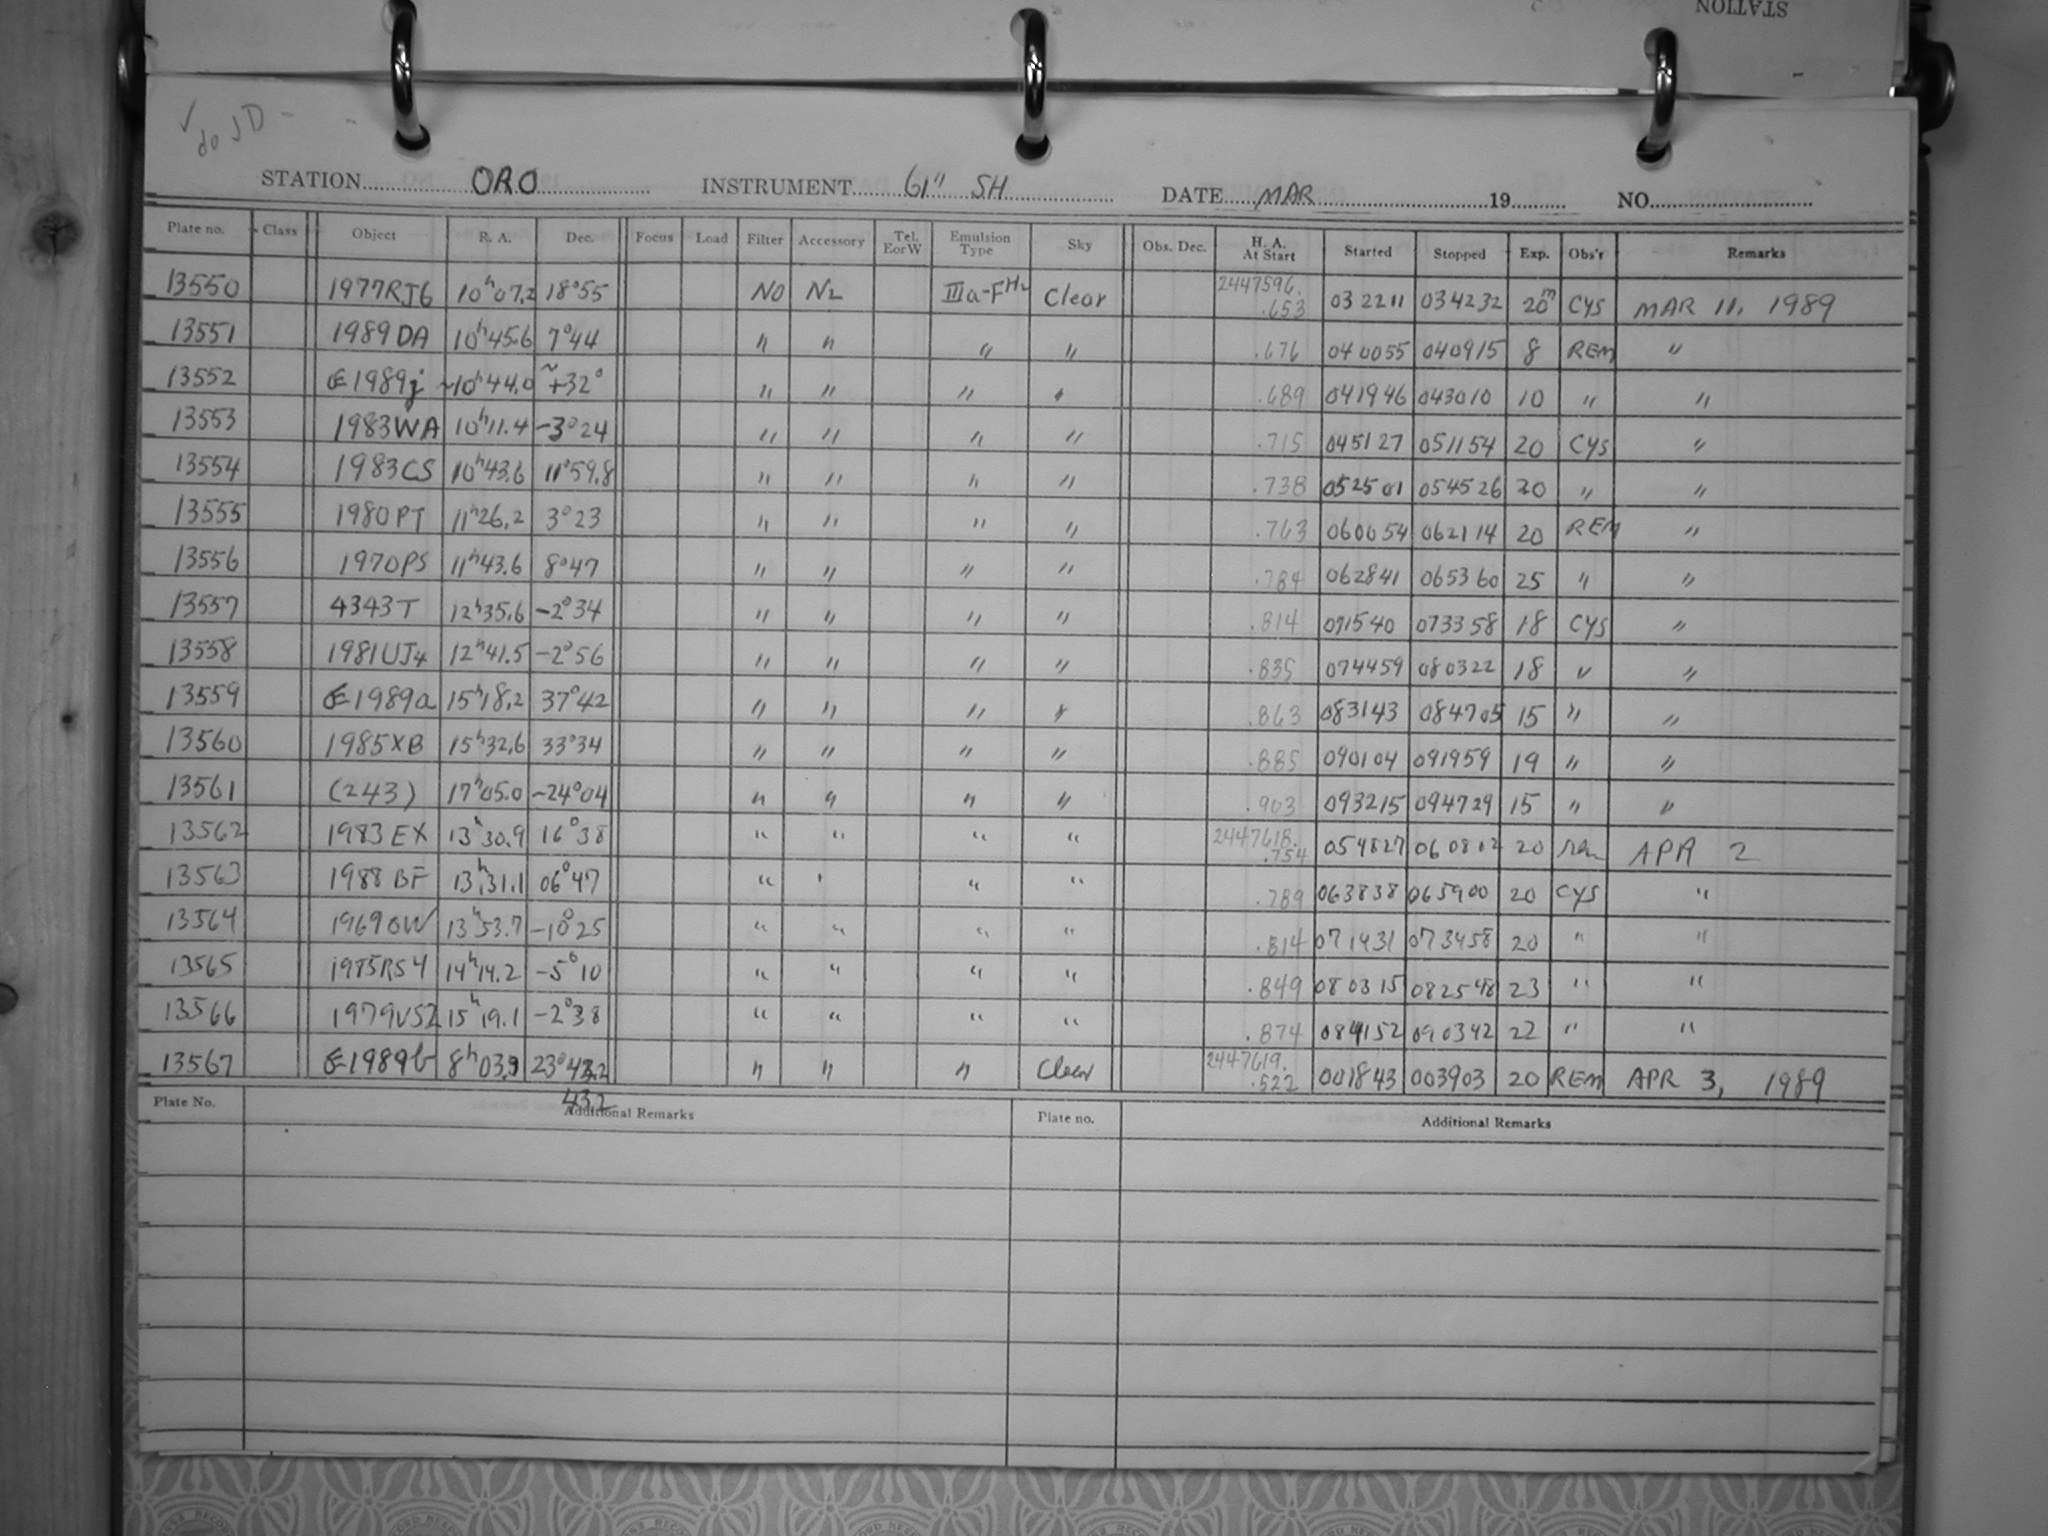 STATION
✓ do JD -
STATION ORO INSTRUMENT 61" SH DATE MAR 19 NO.
Plate no. Class Object R. A. Dec. Focus Load Filter Accessory Tel. EorW Emulsion Type Sky Obs. Dec. H. A. At Start Started Stopped Exp. Obs'r Remarks
13550 1977RJ6 10h07.2 18°55 NO N2 IIIa-F H2 Clear 2447596. .653 032211 034232 20m CYS MAR 11, 1989
13551 1989DA 10h45.6 7°44 " " " " .676 040055 040915 8 REM "
13552 1989j ~10h44.0 ~+32° " " " " .689 041946 043010 10 " "
13553 1983WA 10h11.4 -3°24 " " " " .715 045127 051154 20 CYS "
13554 1983CS 10h43.6 11°59.8 " " " " .738 052501 054526 20 " "
13555 1980PT 11h26.2 3°23 " " " " .763 060054 062114 20 REM "
13556 1970PS 11h43.6 8°47 " " " " .784 062841 065360 25 " "
13557 4343T 12h35.6 -2°34 " " " " .814 071540 073358 18 CYS "
13558 1981UJ4 12h41.5 -2°56 " " " " .835 074459 080322 18 " "
13559 1989a 15h18.2 37°42 " " " " .863 083143 084705 15 " "
13560 1985XB 15h32.6 33°34 " " " " .885 090104 091959 19 " "
13561 (243) 17h05.0 -24°04 " " " " .903 093215 094729 15 " "
13562 1983EX 13h30.9 16°38 " " " " 2447618. .754 054827 060802 20 rem APR 2
13563 1988BF 13h31.1 06°47 " ' " " .789 063838 065900 20 CYS "
13564 1969OW 13h53.7 -10°25 " " " " .814 071431 073458 20 " "
13565 1975RS4 14h14.2 -5°10 " " " " .849 080315 082548 23 " "
13566 1979VS2 15h19.1 -2°38 " " " " .874 084152 090342 22 " "
13567 1989b 8h03.9 23°43.2 " " " Clear 2447619. .522 001843 003903 20 REM APR 3, 1989
43.2
Plate No. Additional Remarks Plate no. Additional Remarks